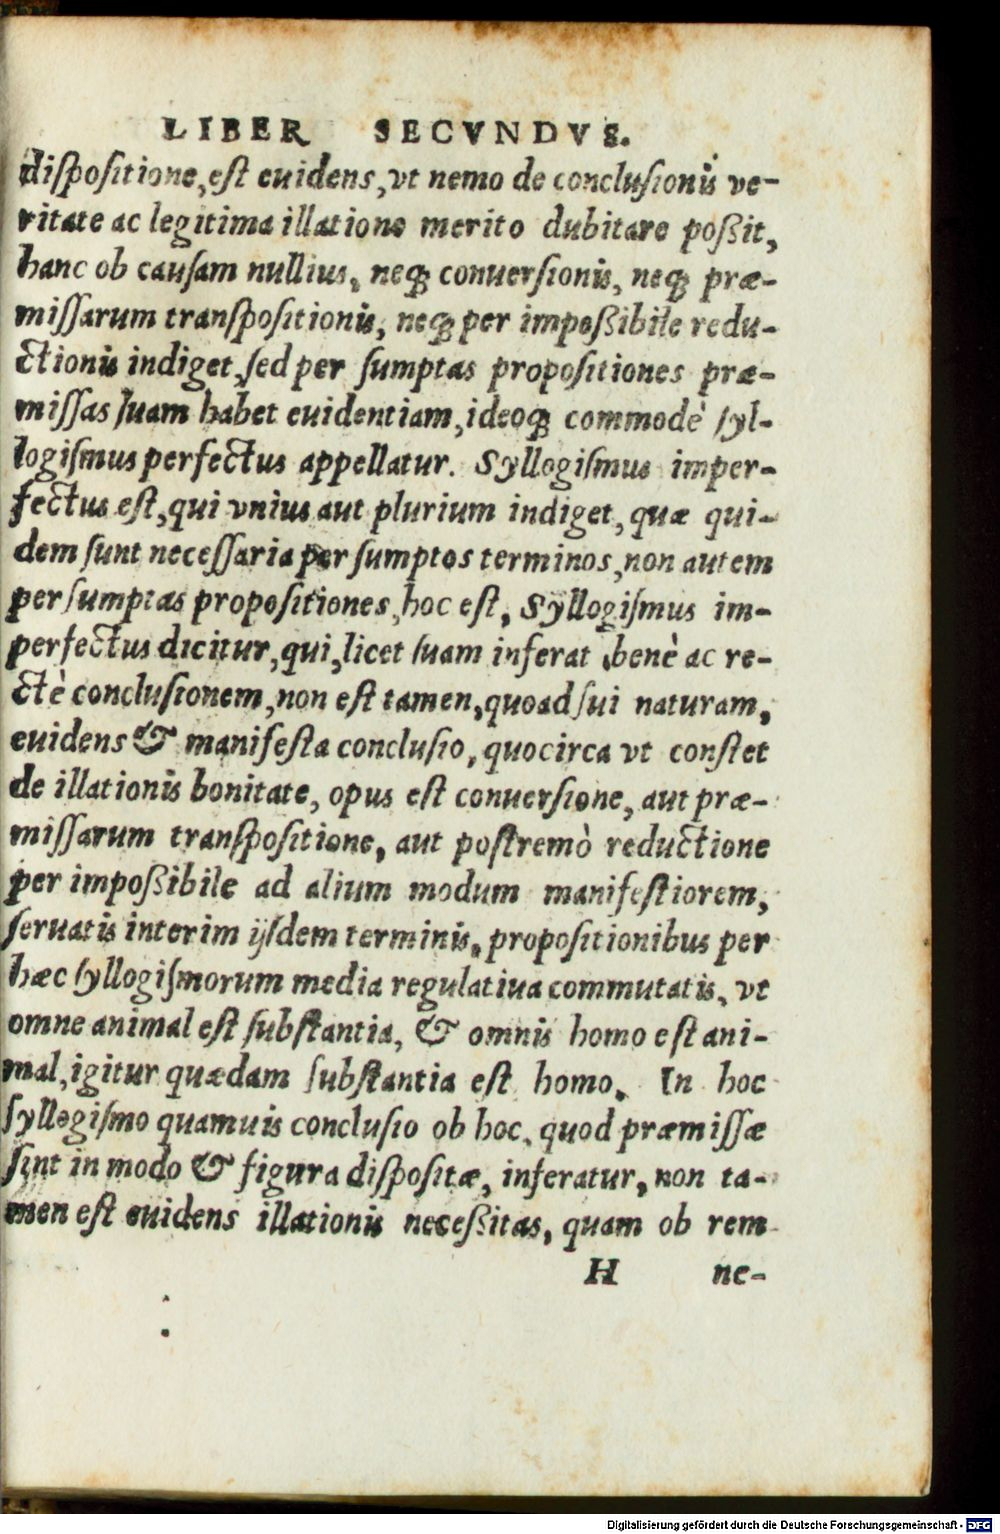 LIBER SECVNDVS.
dispositione, est euidens, vt nemo de conclusionis ve-
ritate ac legitima illatione merito dubitare poßit,
hanc ob causam nullius, neq́; conuersionis, neq́; præ-
missarum transpositionis, neq́; per impoßibile redu-
ctionis indiget, sed per sumptas propositiones præ-
missas suam habet euidentiam, ideoq́; commodè syl-
logismus perfectus appellatur. Syllogismus imper-
fectus est, qui vnius aut plurium indiget, quæ qui-
dem sunt necessaria per sumptos terminos, non autem
per sumptas propositiones, hoc est, Syllogismus im-
perfectus dicitur, qui, licet suam inferat benè ac re-
ctè conclusionem, non est tamen, quoad sui naturam,
euidens & manifesta conclusio, quocirca vt constet
de illationis bonitate, opus est conuersione, aut præ-
missarum transpositione, aut postremò reductione
per impoßibile ad alium modum manifestiorem,
seruatis interim ijsdem terminis, propositionibus per
hæc syllogismorum media regulatiua commutatis, vt
omne animal est substantia, & omnis homo est ani-
mal, igitur quædam substantia est homo. In hoc
syllogismo quamuis conclusio ob hoc, quod præmissæ
sint in modo & figura dispositæ, inferatur, non ta-
men est euidens illationis neceßitas, quam ob rem
H ne-
Digitalisierung gefördert durch die Deutsche Forschungsgemeinschaft - DFG